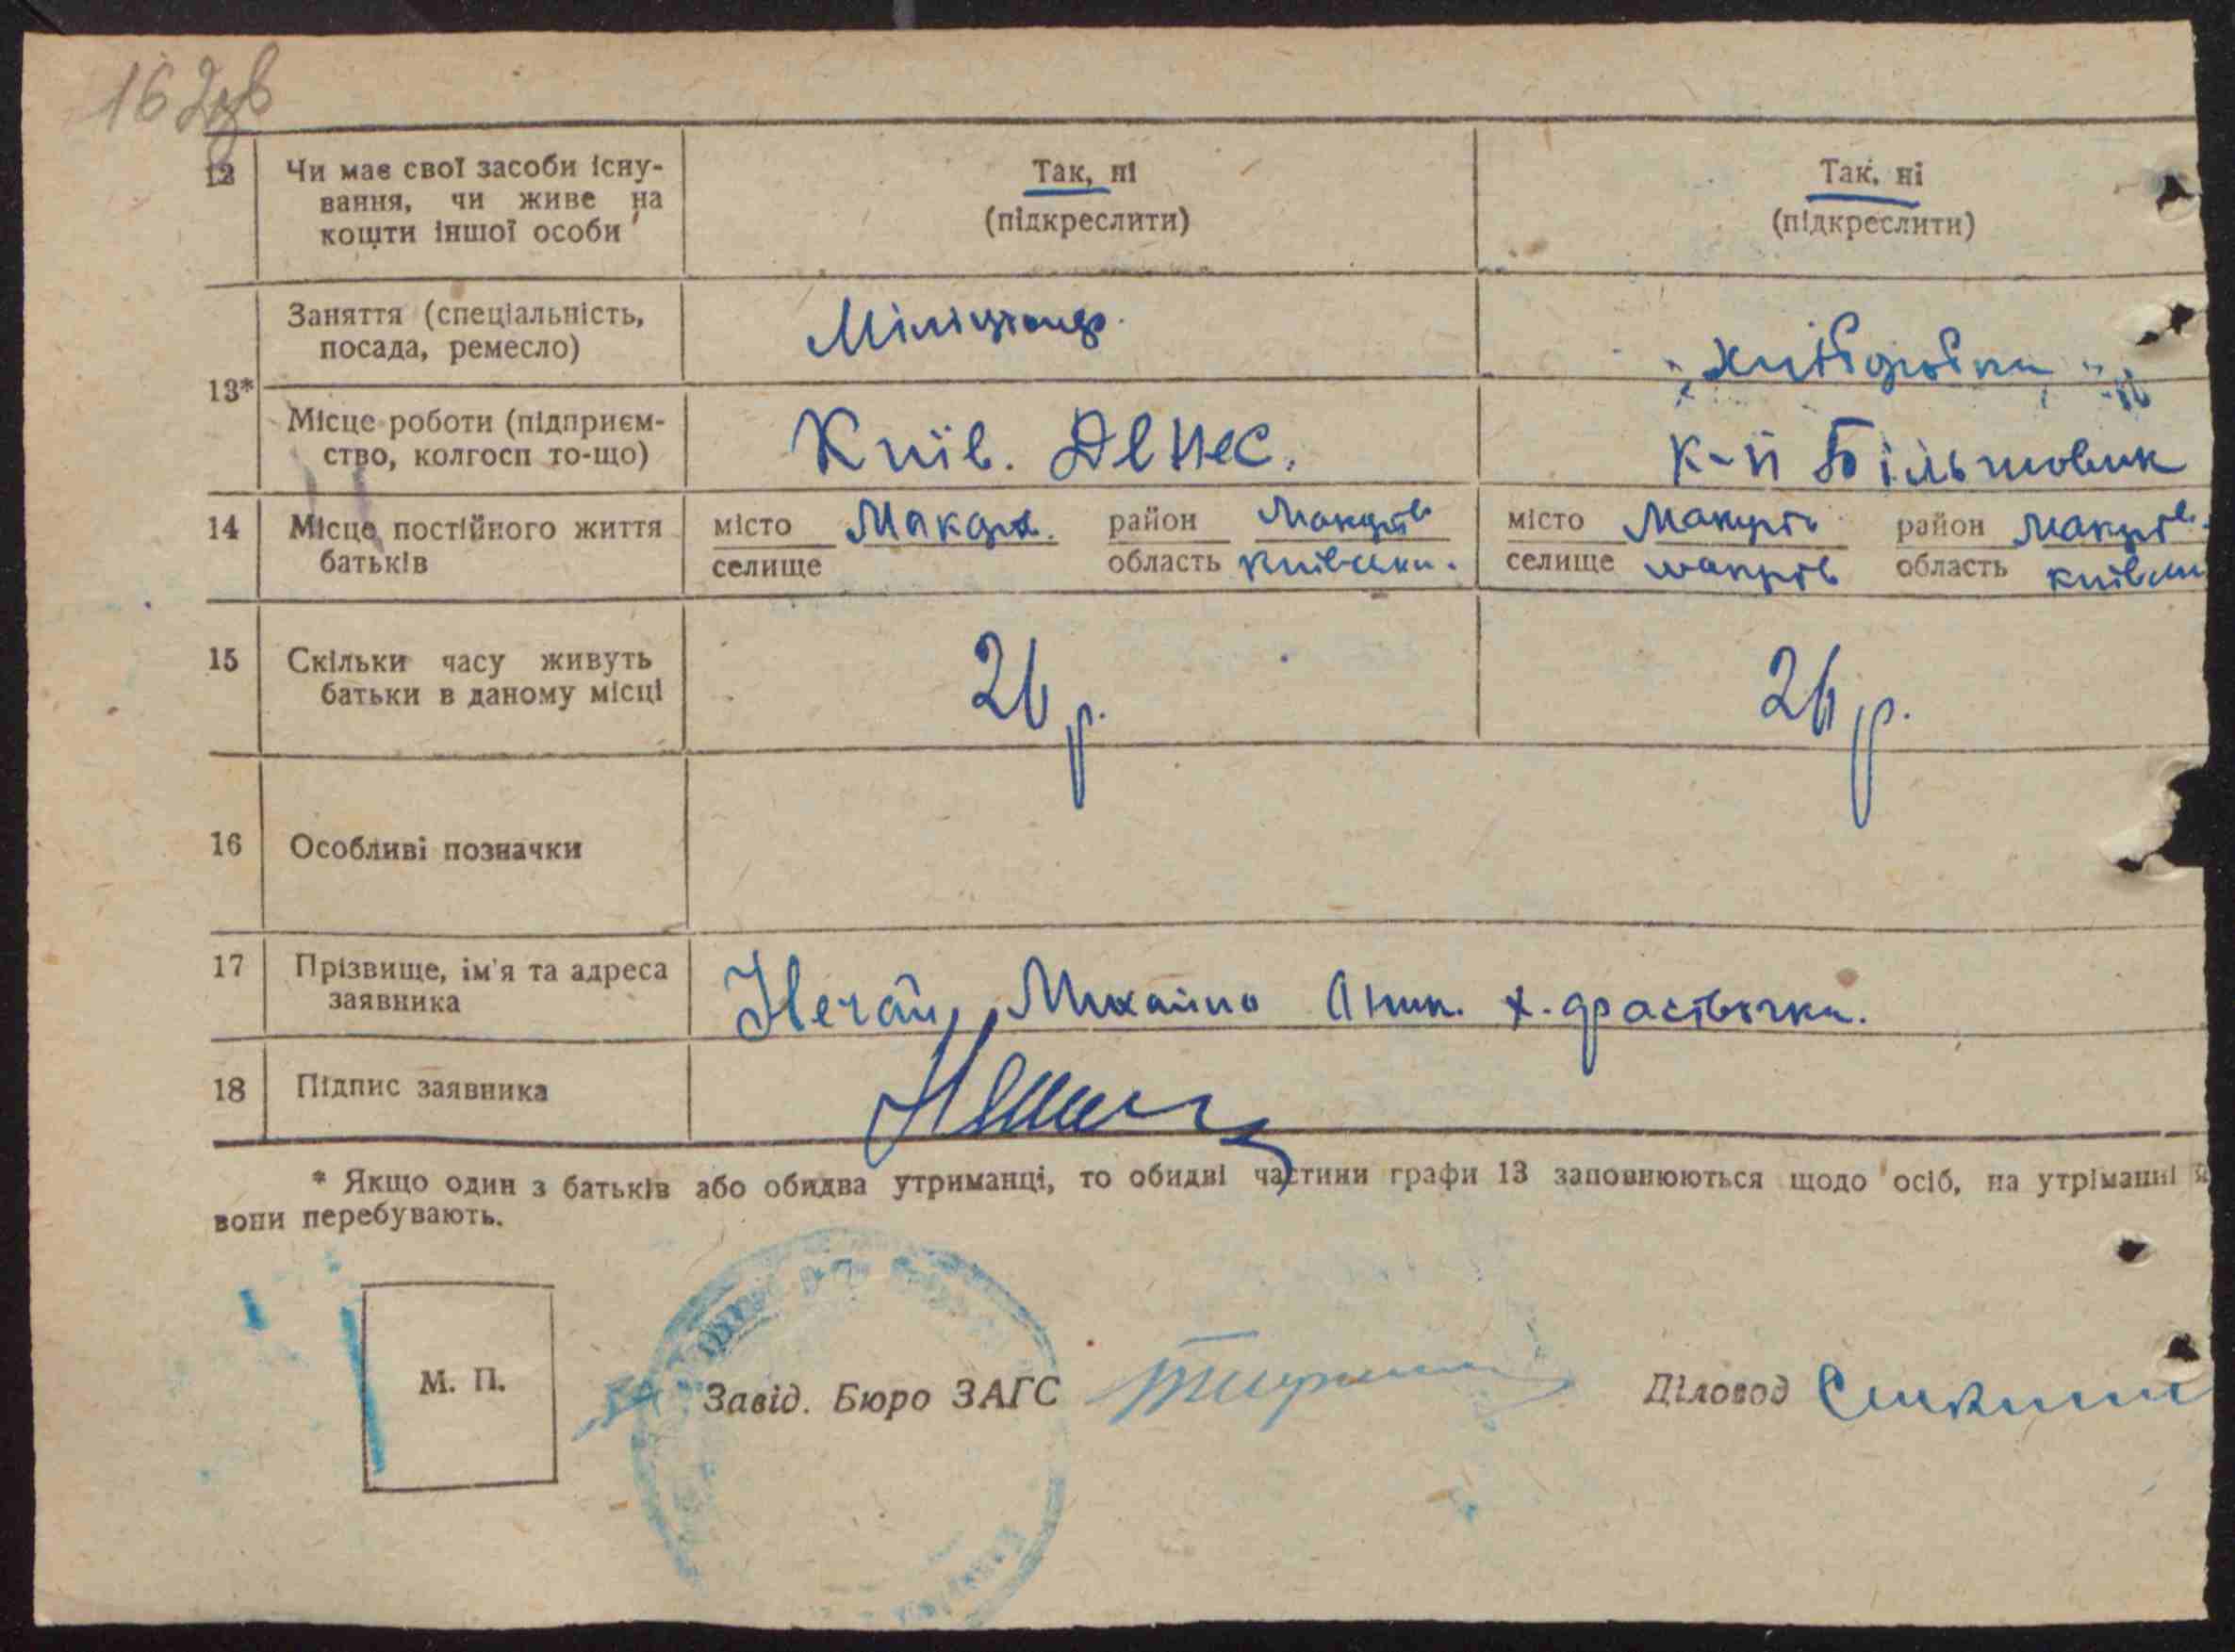 162
12 Чи має свої засоби існу- Так, ні Так, ні
вання, чи живе на (підкреслити) (підкреслити)
кошти іншої особи
13* Заняття (спеціальність, Міліціонер. хліборобка
посада, ремесло)
Місце роботи (підприєм- Київ. к-п Більшовик
ство, колгосп то-що)
14 Місце постійного життя місто Макар. район Макарів місто Макарів район Макарів.
батьків селище область Київськ. селище Макарів область Київськ
15 Скільки часу живуть 26 р. 26 р.
батьки в даному місці
16 Особливі позначки
17 Прізвище, ім'я та адреса Нечай, Михайло х.
заявника
18 Підпис заявника
* Якщо один з батьків або обидва утриманці, то обидві частини графи 13 заповнюються щодо осіб, на утріманні я
вони перебувають.
М. П. Завід. Бюро ЗАГС Діловод